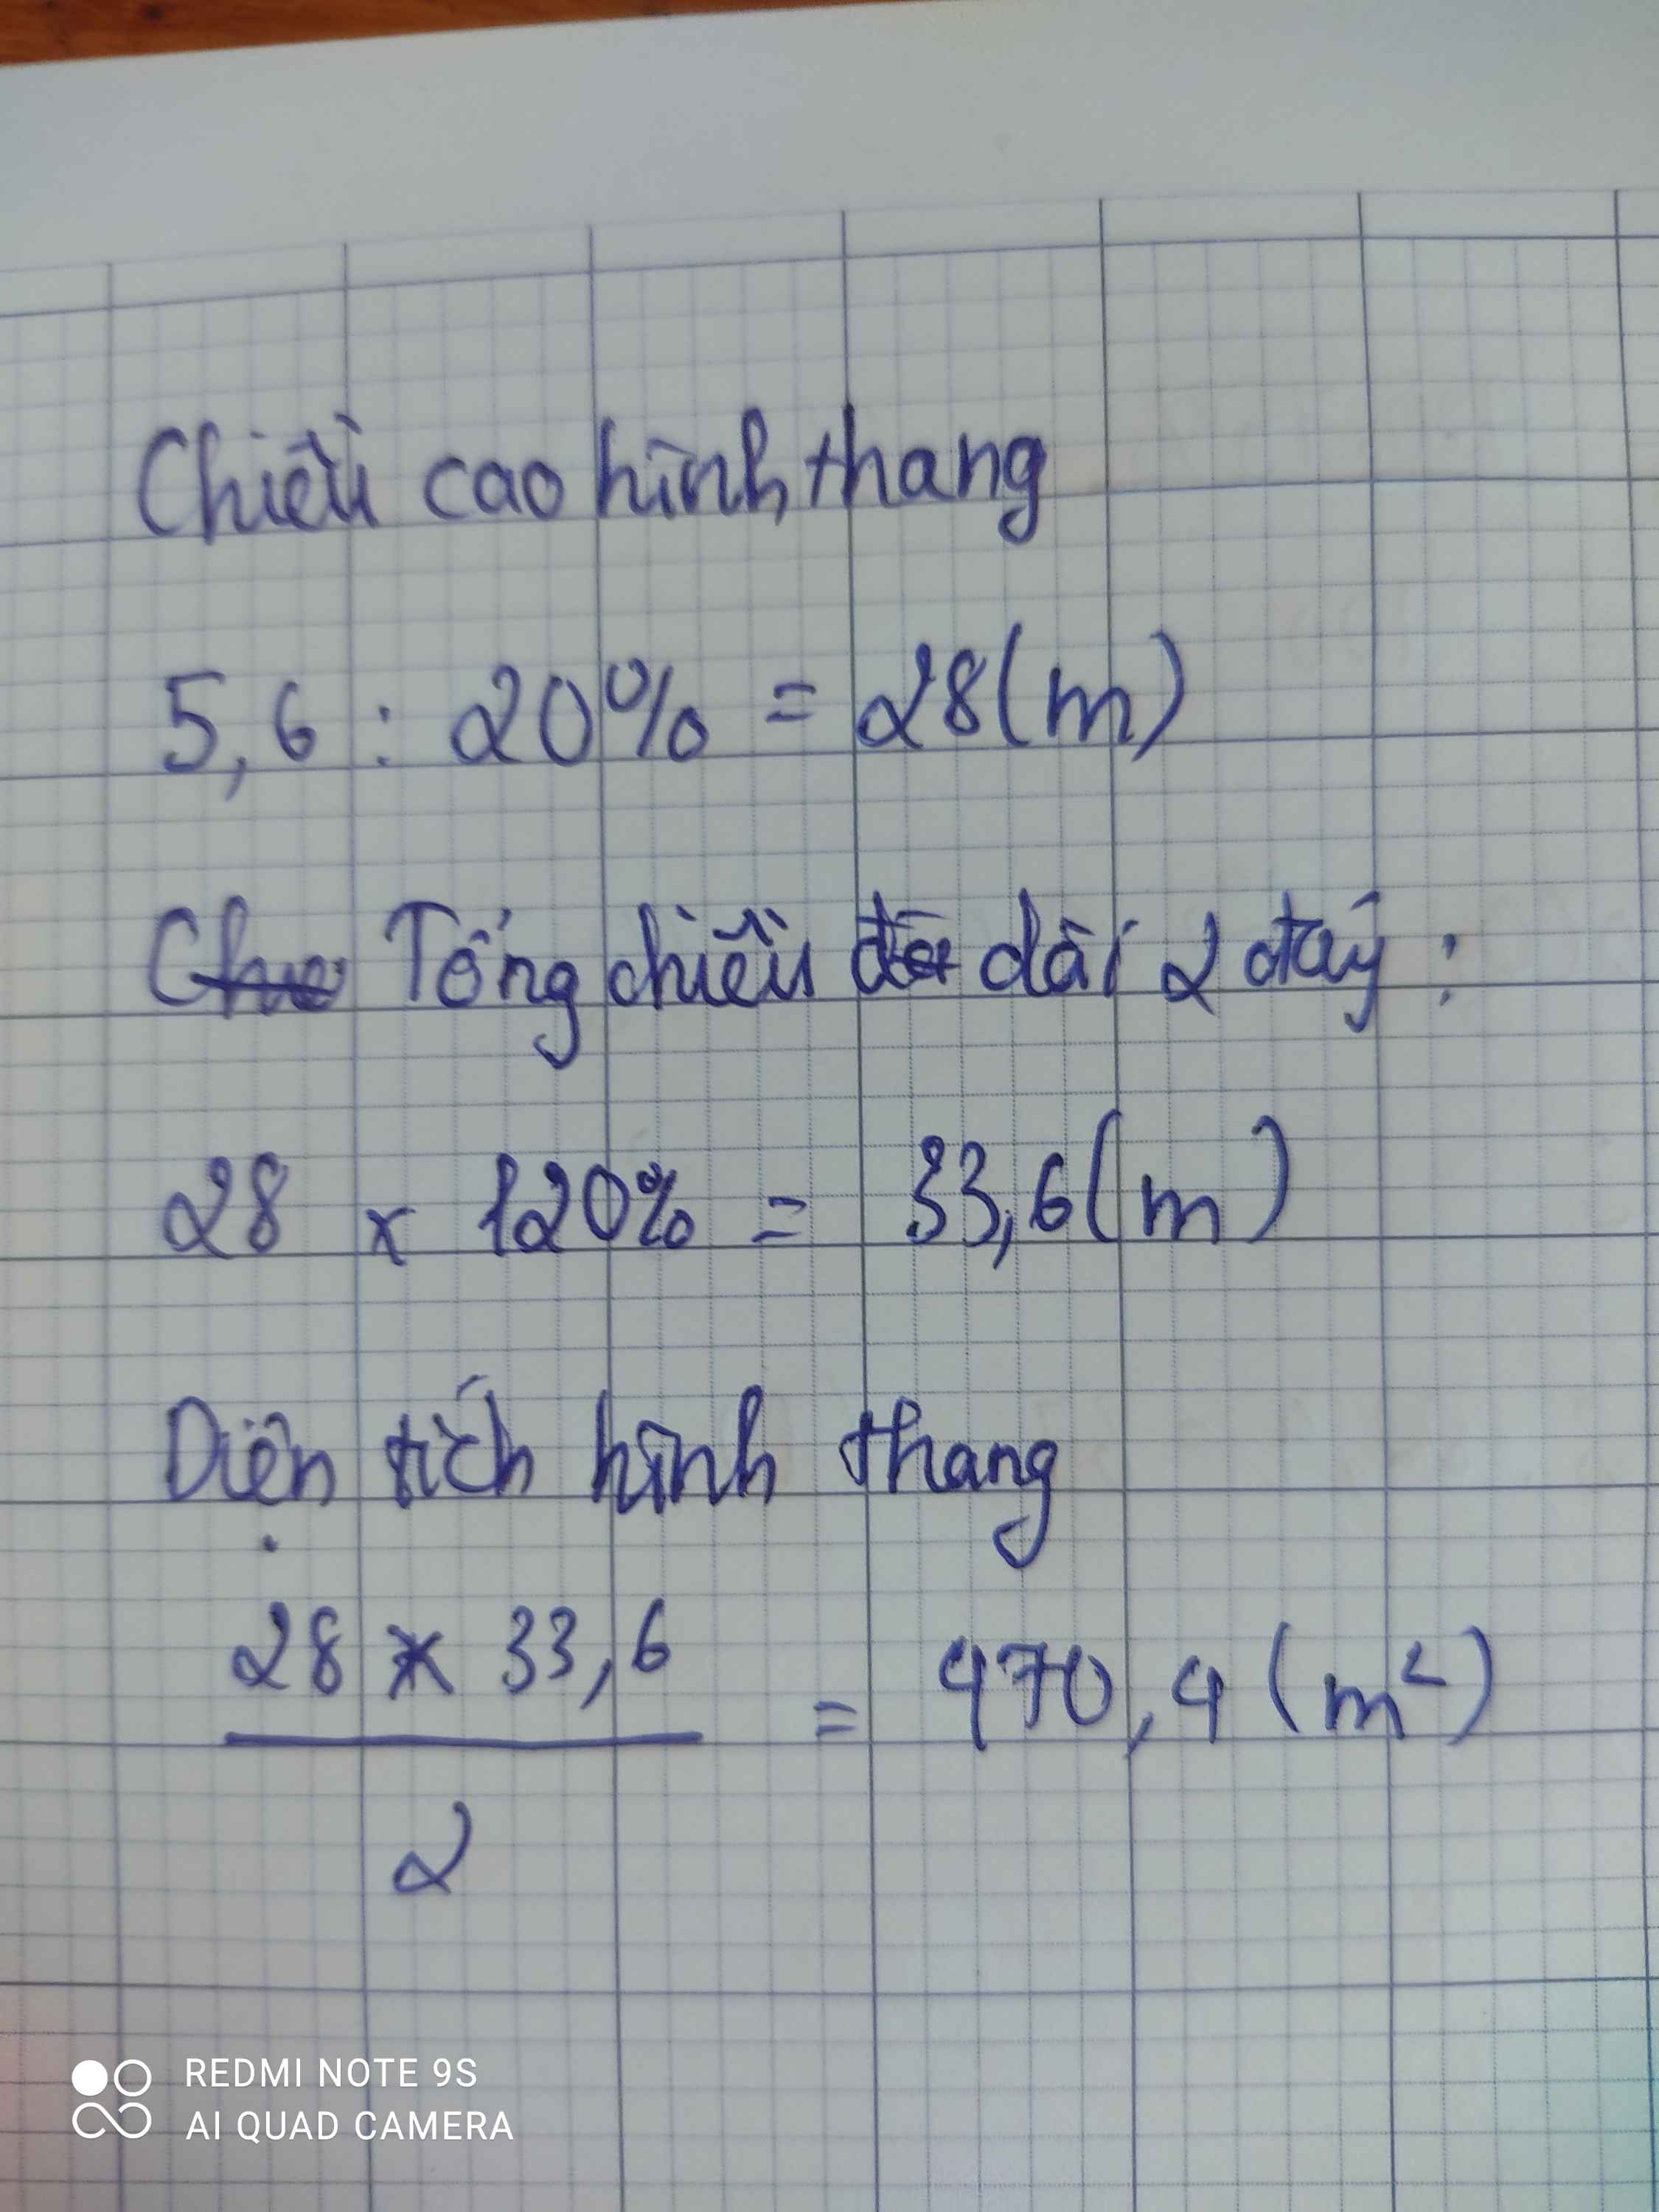 Chiều cao hình thang
5,6 : 20% = 28(m)
Tổng chiều dài 2 đáy :
28 x 120% = 33,6(m)
Diện tích hình thang
28 x 33,6
= 470,4 (m²)
2
REDMI NOTE 9S
AI QUAD CAMERA